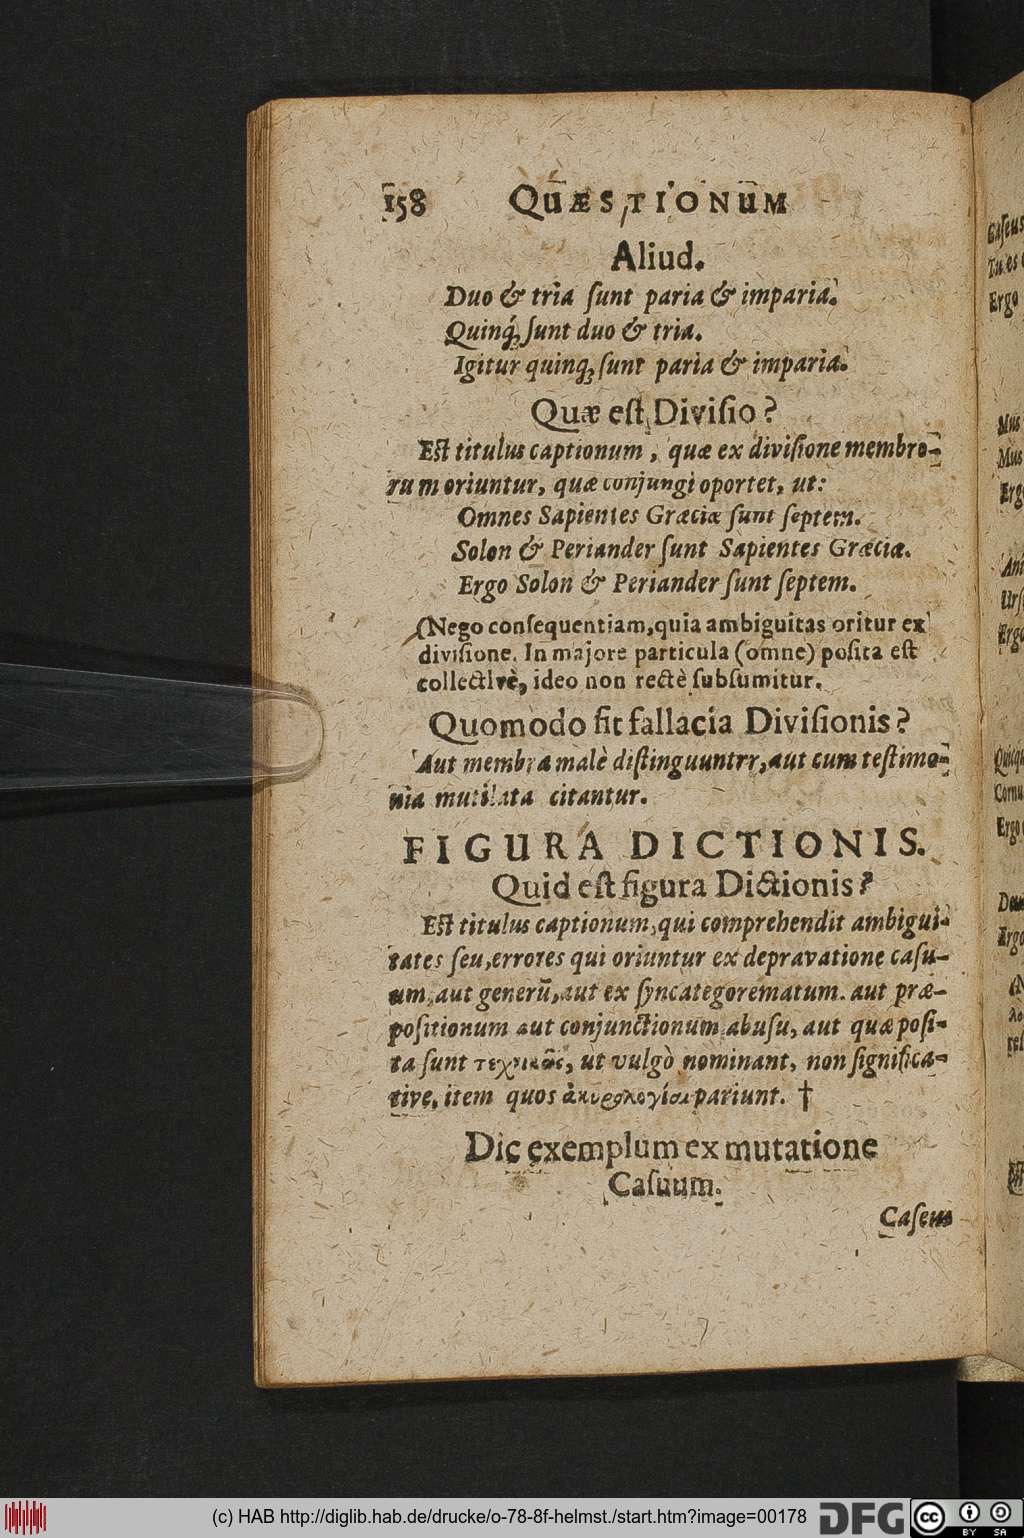 158 QUÆSTIONUM
Aliud.
Duo & tria ſunt paria & imparia.
Quinq; ſunt duo & tria.
Igitur quinq; ſunt paria & imparia.
Quæ eſt Diviſio?
Eſt titulus captionum, quæ ex diviſione membro-
rum oriuntur, quæ conjungi oportet, ut:
Omnes Sapientes Græciæ ſunt ſeptem.
Solon & Periander ſunt Sapientes Græciæ.
Ergo Solon & Periander ſunt ſeptem.
(Nego conſequentiam, quia ambiguitas oritur ex
diviſione. In majore particula (omne) poſita eſt
collectivè, ideo non rectè ſubſumitur.
Quomodo fit fallacia Diviſionis?
Aut membra malè diſtinguuntrr, aut cum teſtimo-
nia mutilata citantur.
FIGURA DICTIONIS.
Quid eſt figura Dictionis?
Eſt titulus captionum, qui comprehendit ambigui-
tates ſeu, errores qui oriuntur ex depravatione caſu-
um, aut generũ, aut ex ſyncategorematum. aut præ-
poſitionum aut conjunctionum abuſu, aut quæ poſi-
ta ſunt τεχνικῶς, ut vulgò nominant, non ſignifica-
tive, item quos ἀκυρολογίαι pariunt. †
Dic exemplum ex mutatione
Caſuum.
Caſeus
(c) HAB http://diglib.hab.de/drucke/o-78-8f-helmst./start.htm?image=00178
DFG
cc BY SA